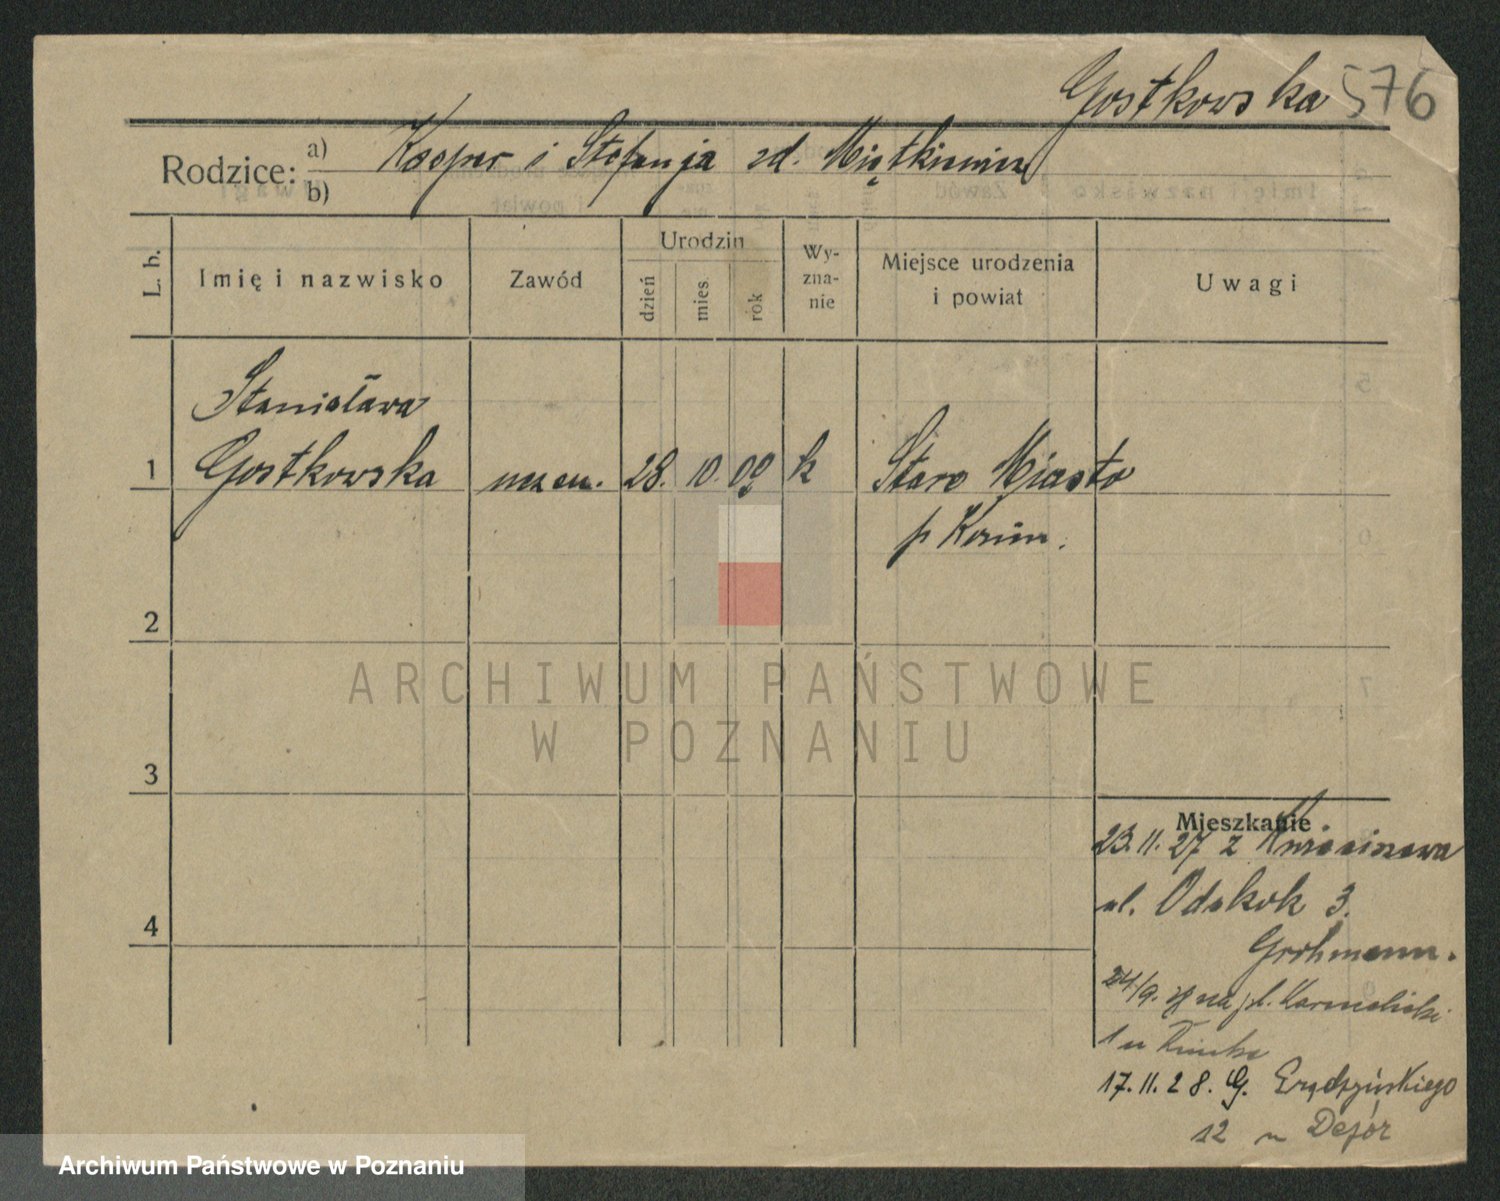 Gostkowska 576
Rodzice: a) Kacper i Stefanja zd. Miętkiewicz
b)
L. b.
Imię i nazwisko
Zawód
Urodzin
dzień
mies.
rok
Wy-
zna-
nie
Miejsce urodzenia
i powiat
Uwagi
Stanisława
1 Gostkowska uczen. 28. 10. 09 k Stare Miasto
p Konin.
2
3
4
ARCHIWUM PAŃSTWOWE
W POZNANIU
Mieszkanie
23.11.27 z
ul. 3.
Grohmann.
24/9. na pl. Karmelicki
1 u
17.11.28. G.
12 u
Archiwum Państwowe w Poznaniu